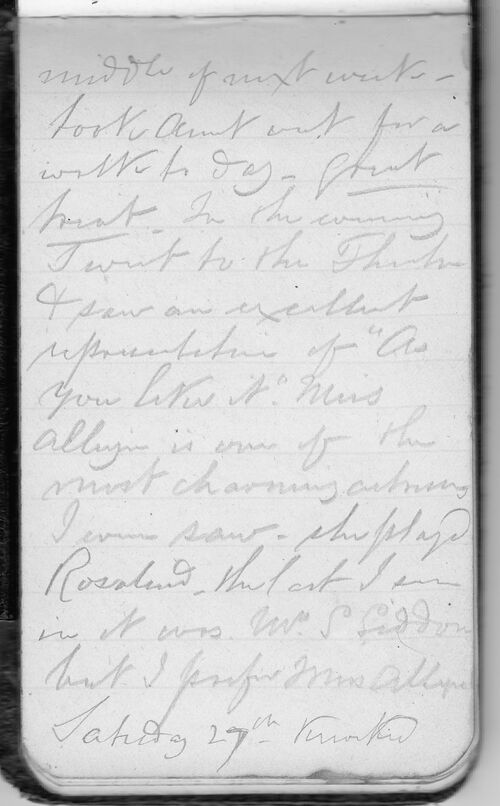 middle of next week -
took Aunt out for a
walk to day - great
treat - In the evening
I went to the Theatre
& saw an excellent
representation of "As
you like it". Miss
Alleyn is one of the
most charming actresses
I ever saw - she played
Rosalind - the last I saw
in it was Mrs S Siddons
but I prefer Miss Alleyn
Saturday 27th Knocked